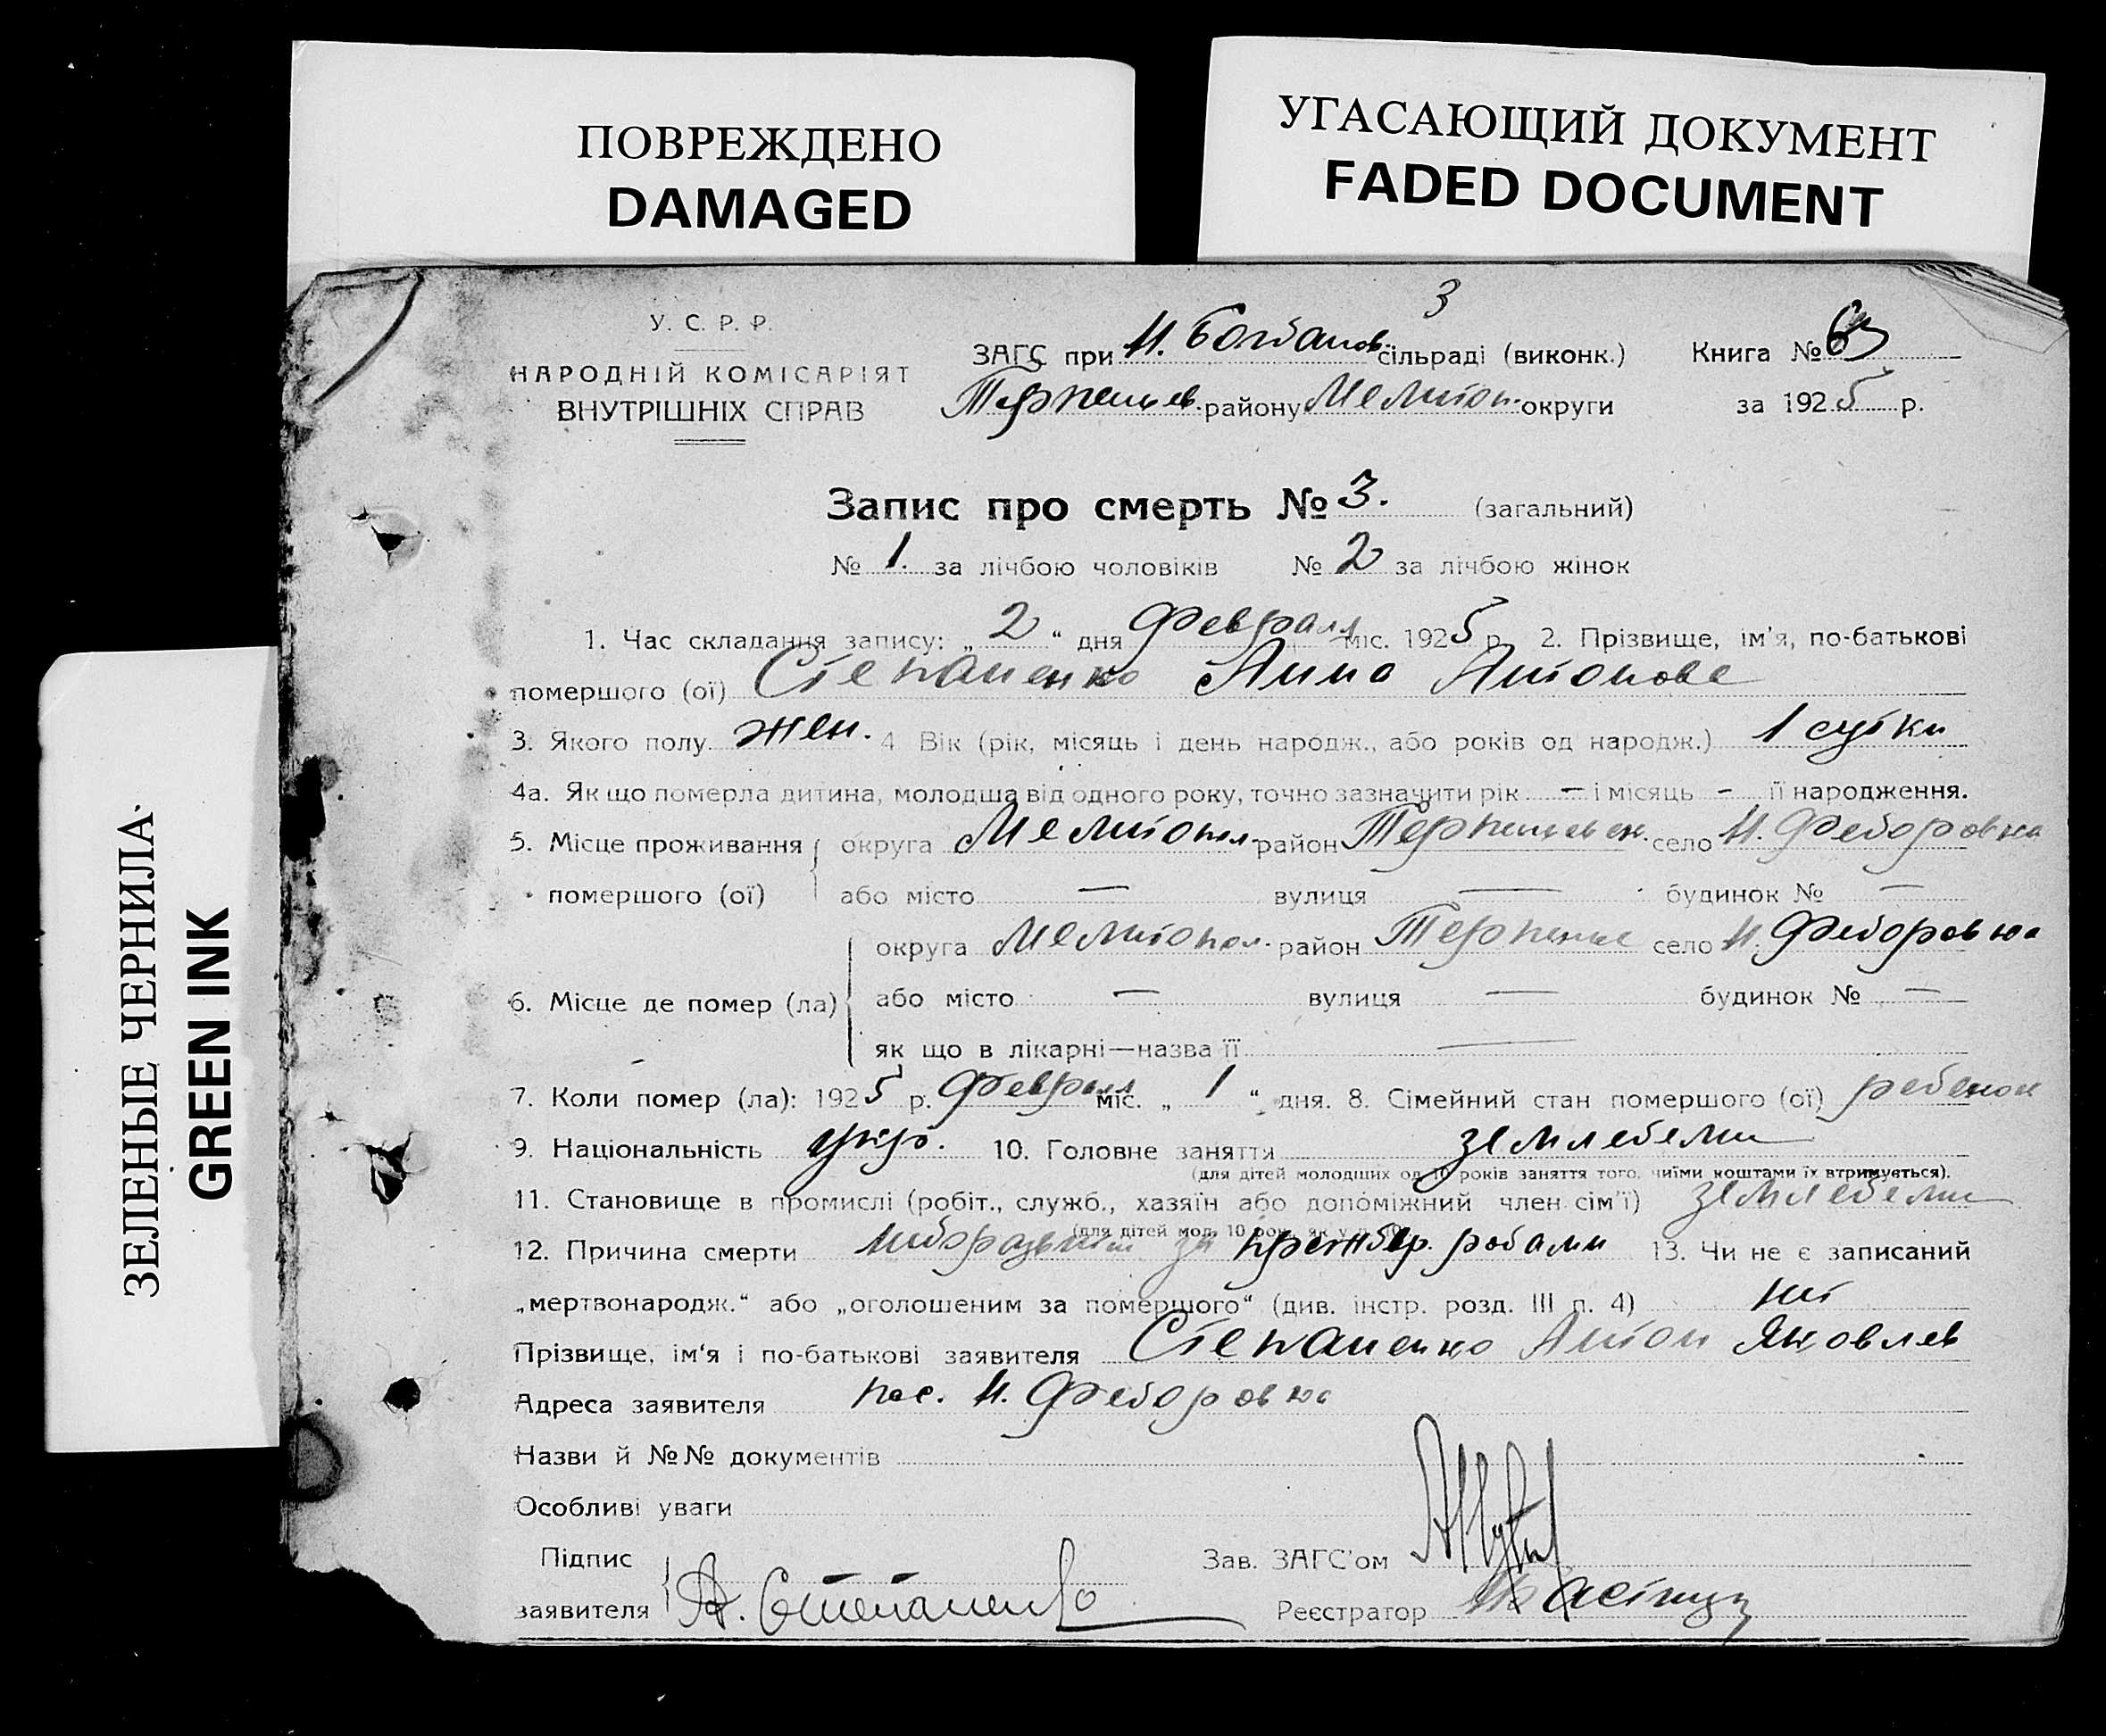 ПОВРЕЖДЕНО
DAMAGED
УГАСАЮЩИЙ ДОКУМЕНТ
FADED DOCUMENT
ЗЕЛЕНЫЕ ЧЕРНИЛА
GREEN INK
3
У. С. Р. Р.
НАРОДНІЙ КОМІСАРІЯТ
ВНУТРІШНІХ СПРАВ
ЗАГС при Н. Богданов. сільраді (виконк.)
Терпеньев. району Мелитоп. округи
Книга №
за 1925 р.
Запис про смерть № 3. (загальний)
№ 1. за лічбою чоловіків № 2 за лічбою жінок
1. Час складання запису: „2“ дня Февраля міс. 1925 р. 2. Прізвище, ім'я, по-батькові
помершого (ої) Степаненко Анна Антонова
3. Якого полу жен. 4 Вік (рік, місяць і день народж., або років од народж.) 1 сутки
4а. Як що померла дитина, молодша від одного року, точно зазначити рік — і місяць - її народження.
5. Місце проживання округа Мелитопол. район Терпеньевск. село Н. Федоровка
помершого (ої) або місто — вулиця — будинок № —
округа Мелитопол. район Терпенье село Н. Федоровка
6. Місце де помер (ла) або місто — вулиця — будинок № —
як що в лікарні—назва її —
7. Коли помер (ла): 1925 р. Февраля міс. „1“ дня. 8. Сімейний стан помершого (ої) ребенок
9. Національність укр. 10. Головне заняття земледелие
(для дітей молодших од 10 років заняття того, чиїми коштами їх втримується).
11. Становище в промислі (робіт., служб., хазяїн або допоміжний член сім'ї) земледелие
(для дітей мол. 10 рок. як у п. 10)
12. Причина смерти родами 13. Чи не є записаний
„мертвонародж.“ або „оголошеним за помершого“ (див. інстр. розд. III п. 4) нет
Прізвище, ім'я і по-батькові заявителя Степаненко Антон Яковлев
Адреса заявителя пос. Н. Федоровка
Назви й №№ документів
Особливі уваги
Підпис
заявителя А. Степаненко
Зав. ЗАГС'ом
Реєстратор